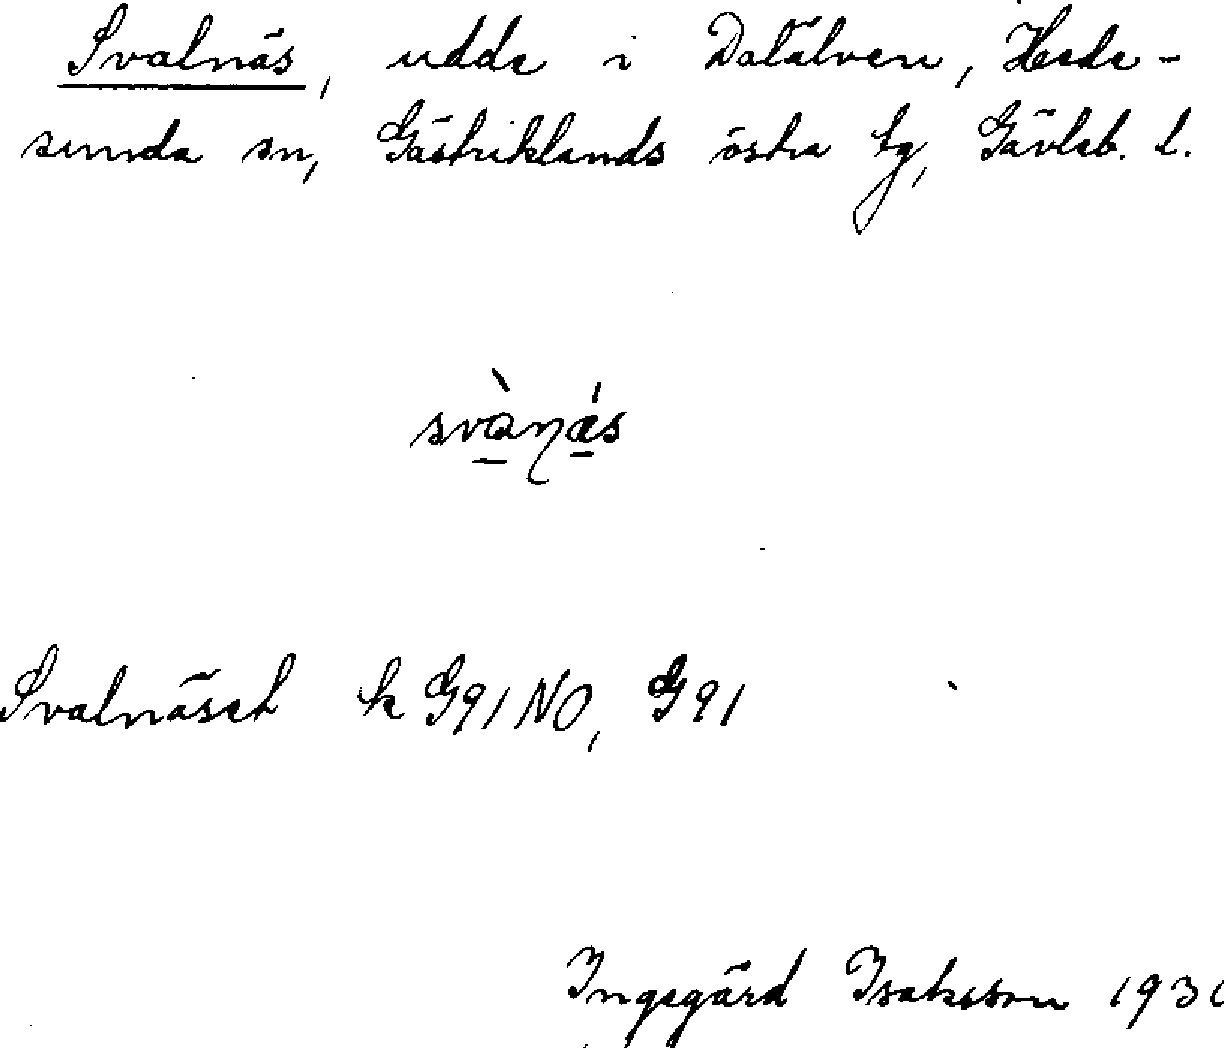 Svalnäs, udde i Dalälven, Hede-
sunda sn, Gästriklands östra tg, Gävleb. l.
svànás
Svalnäset k G91NO, G91
Ingegärd Isaksson